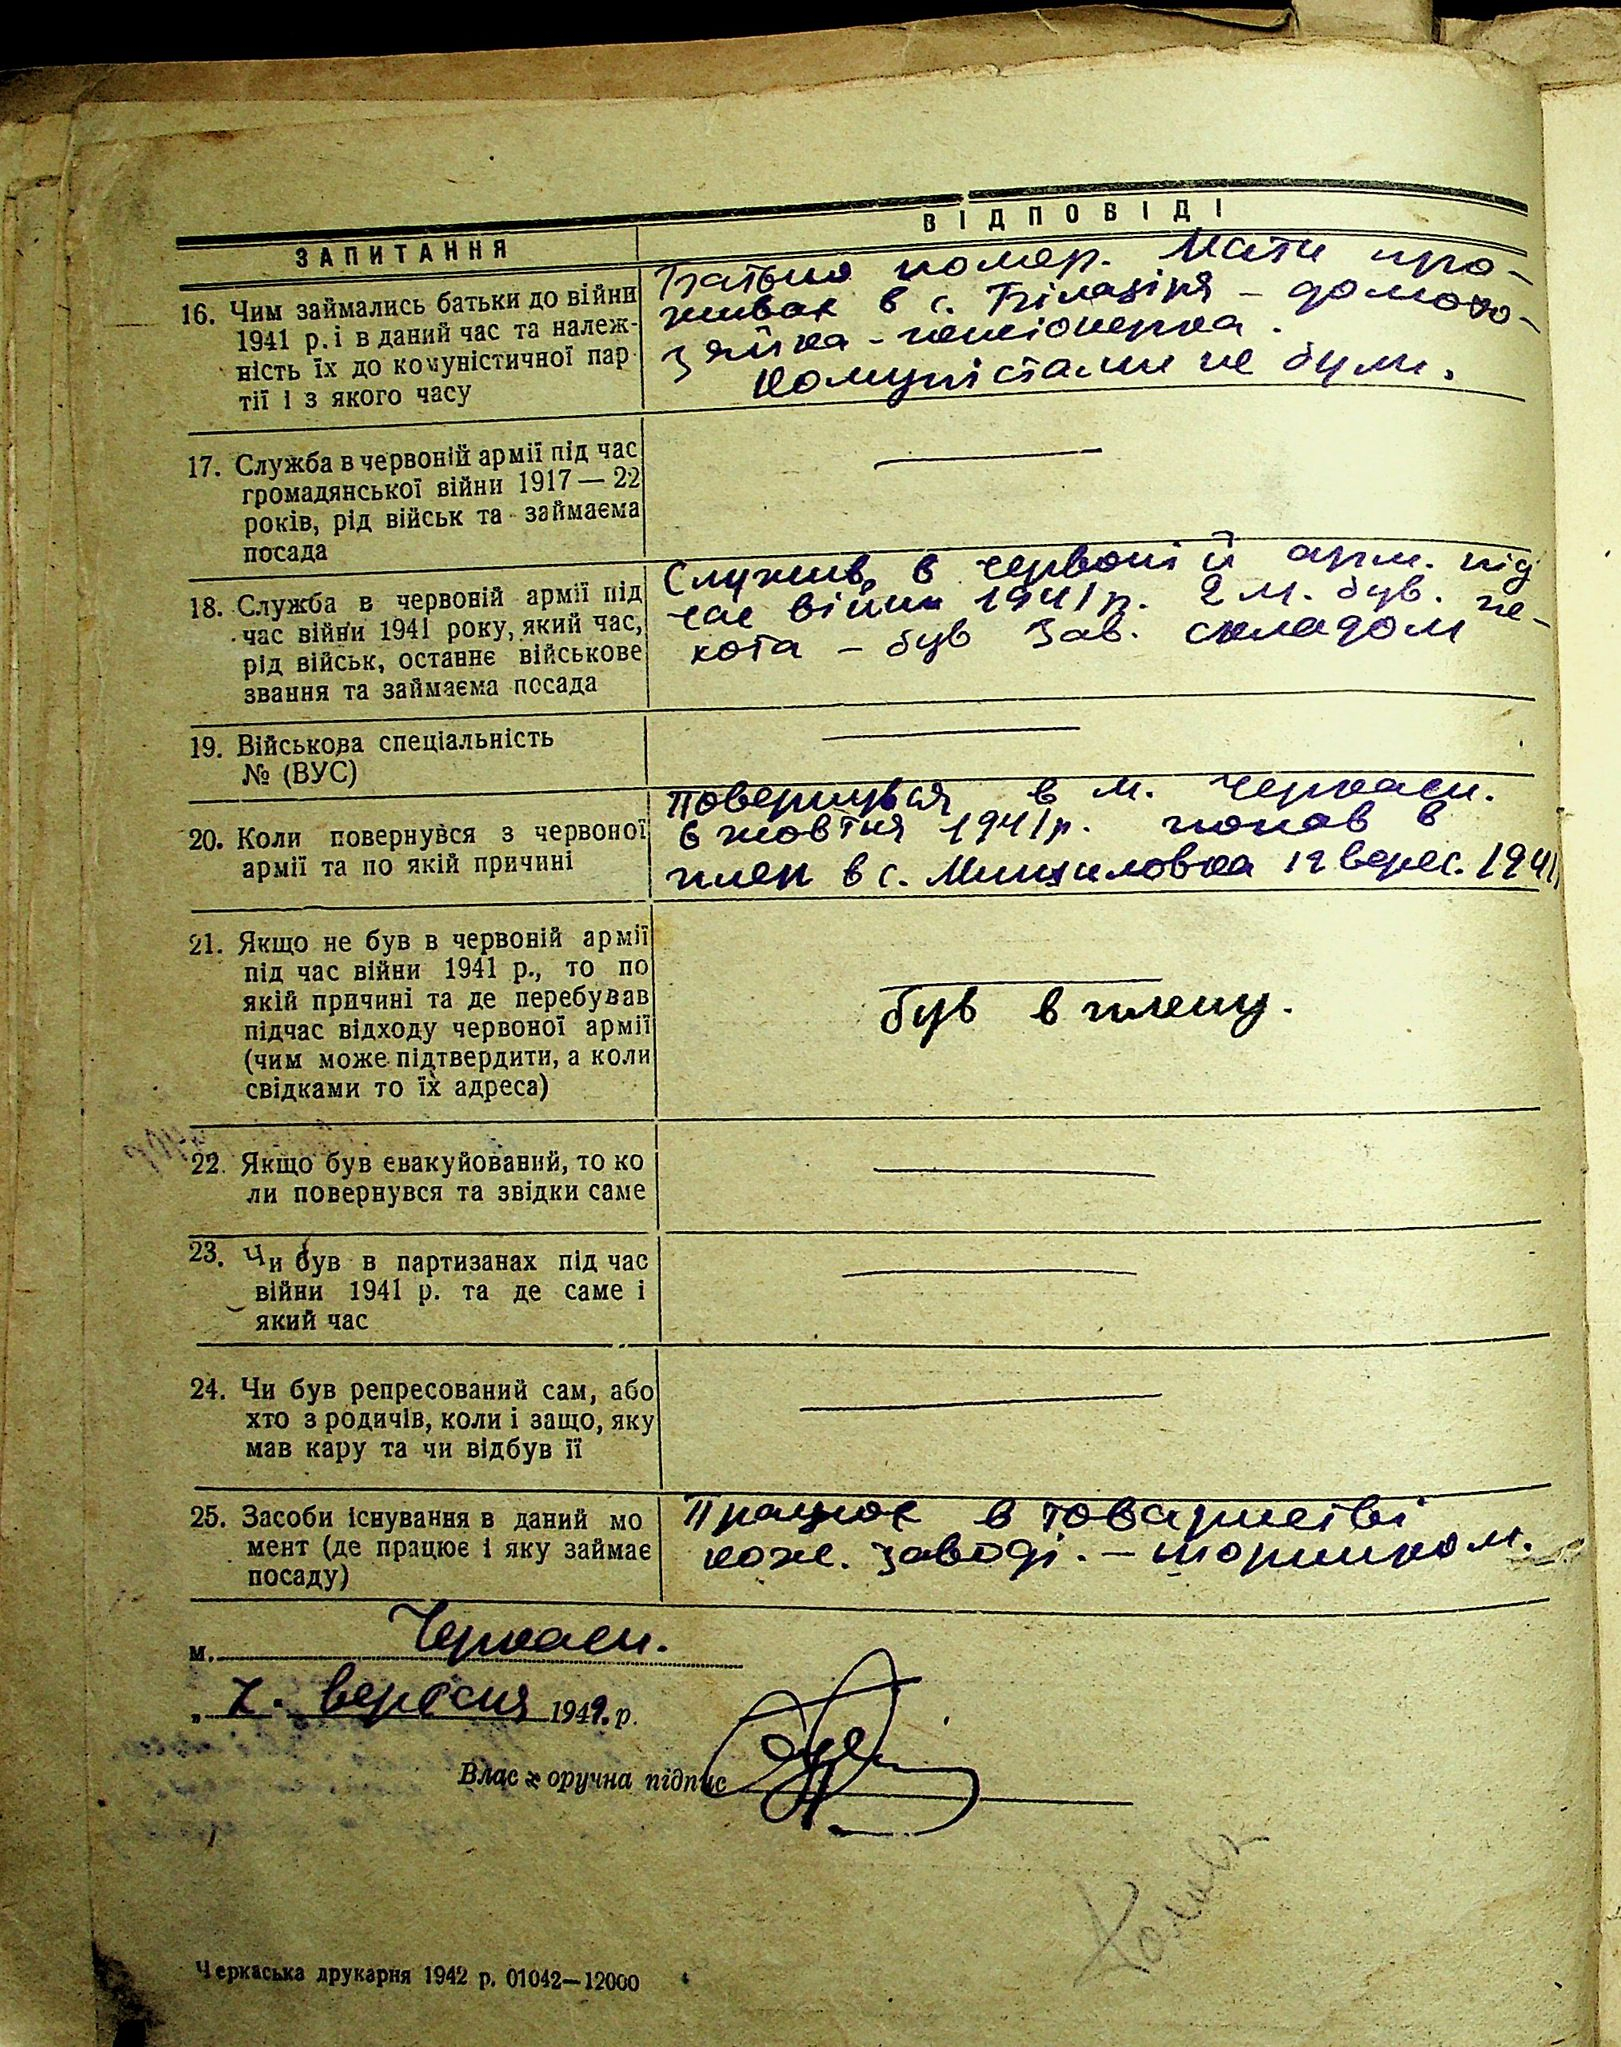 ЗАПИТАННЯ
ВІДПОВІДІ
16. Чим займались батьки до війни
1941 р. і в даний час та належ-
ність їх до комуністичної пар
тії і з якого часу
Батько помер. Мати про-
живає в с. Білазіря – домохо-
зяйка – пенсіонерка.
Комуністами не були.
17. Служба в червоній армії під час
громадянської війни 1917 — 22
років, рід військ та займаєма
посада
18. Служба в червоній армії під
час війни 1941 року, який час,
рід військ, останнє військове
звання та займаєма посада
Служив в червоній арм. під
час війни 1941 р. 2 м. був. пе-
хота – був зав. складом
19. Військова спеціальність
№ (ВУС)
20. Коли повернувся з червоної
армії та по якій причині
Повернувся в м. Черкаси.
6 жовтня 1941 р. попав в
плен в с. 12 верес. 1941
21. Якщо не був в червоній армії
під час війни 1941 р., то по
якій причині та де перебував
підчас відходу червоної армії
(чим може підтвердити, а коли
свідками то їх адреса)
був в плену.
22. Якщо був евакуйований, то ко
ли повернувся та звідки саме
23. Чи був в партизанах під час
війни 1941 р. та де саме і
який час
24. Чи був репресований сам, або
хто з родичів, коли і защо, яку
мав кару та чи відбув її
25. Засоби існування в даний мо
мент (де працює і яку займає
посаду)
Працює в товаристві
кож. заводі. – шорником.
м. Черкаси.
„ вересня 1942. р.
Власноручна підпис
Черкаська друкарня 1942 р. 01042—12000